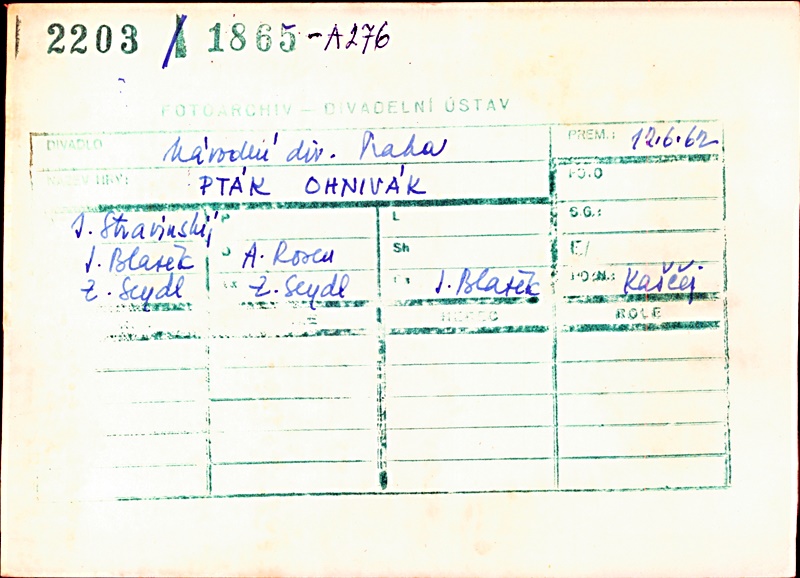 2203 / 1865-A276
FOTOARCHIV — DIVADELNÍ ÚSTAV
DIVADLO Národní div. Praha PREM.: 12.6.62
NÁZEV HRY: PTÁK OHNIVÁK
I. Stravinskij L S.G.:
J. Blažěk A. Rosen Sh
Z. Seydl Z. Seydl J. Blažěk POZN.: Kaščej
HEREC ROLE